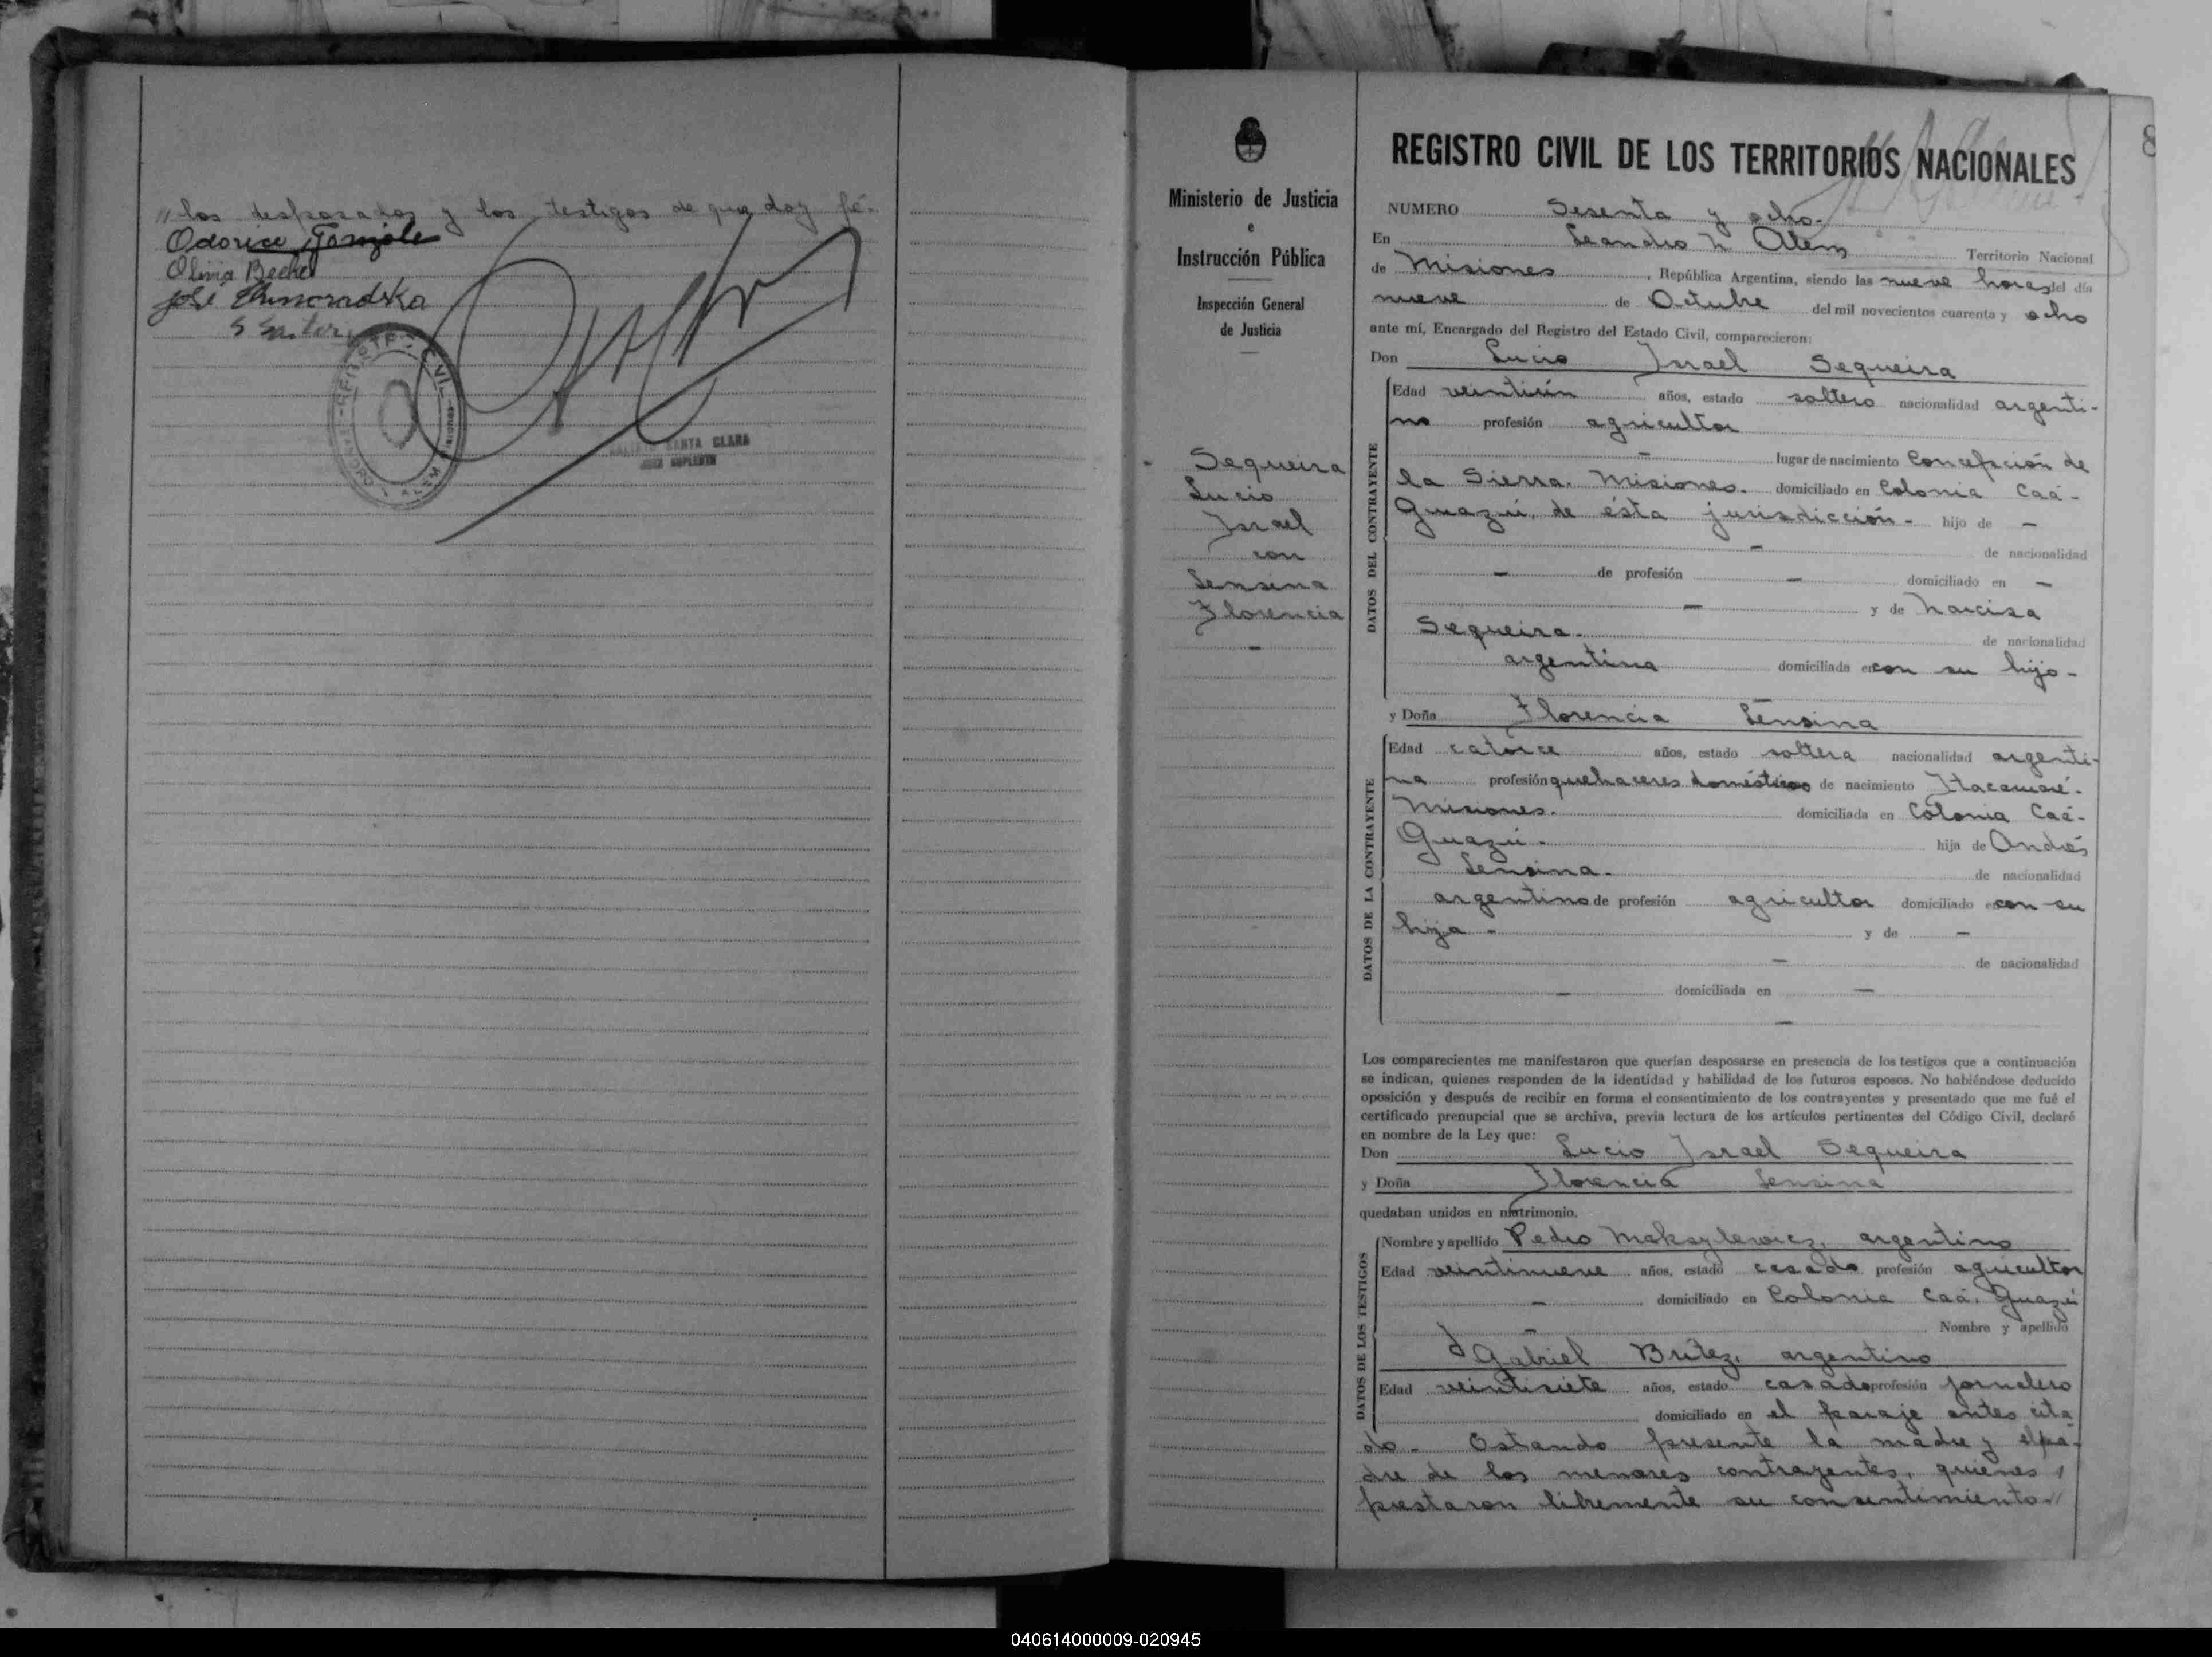 " los desposados y los testigos de que doy fé.-
Odorico Gonzale
Olivia Becker
José
REGISTRO CIVIL
LEANDRO N. ALEM
SANTA CLARA
JUEZ SUPLENTE
Ministerio de Justicia
e
Instrucción Pública
Inspección General
de Justicia
Sequeira
Lucio
Israel
con
Sensina
Florencia
-
8
REGISTRO CIVIL DE LOS TERRITORIOS NACIONALES
NUMERO Sesenta y ocho.
En Leandro N Alem Territorio Nacional
de Misiones, República Argentina, siendo las nueve horas del día
nueve de Octubre del mil novecientos cuarenta y ocho
ante mí, Encargado del Registro del Estado Civil, comparecieron:
Don Lucio Israel Sequeira
DATOS DEL CONTRAYENTE
Edad veintiún años, estado soltero nacionalidad argenti-
no profesión agricultor
- lugar de nacimiento Concepción de
la Sierra. Misiones. domiciliado en Colonia Caá-
Guazú, de ésta jurisdicción - hijo de -
- de nacionalidad
- de profesión - domiciliado en -
- y de Narcisa
Sequeira. de nacionalidad
argentina domiciliada en con su hijo -
y Doña Florencia Sensina
DATOS DE LA CONTRAYENTE
Edad catorce años, estado soltera nacionalidad argenti-
na profesión quehaceres domésticos de nacimiento Itacaruaré.
Misiones. domiciliada en Colonia Caá-
Guazú. hija de Andrés
Sensina. de nacionalidad
argentino de profesión agricultor domiciliado en con su
hija - y de -
- de nacionalidad
- domiciliada en -
-
Los comparecientes me manifestaron que querían desposarse en presencia de los testigos que a continuación
se indican, quienes responden de la identidad y habilidad de los futuros esposos. No habiéndose deducido
oposición y después de recibir en forma el consentimiento de los contrayentes y presentado que me fué el
certificado prenupcial que se archiva, previa lectura de los artículos pertinentes del Código Civil, declaré
en nombre de la Ley que:
Don Lucio Israel Sequeira
y Doña Florencia Sensina
quedaban unidos en matrimonio.
DATOS DE LOS TESTIGOS
Nombre y apellido Pedro Moksylewicz, argentino
Edad veintinueve años, estado casado profesión agricultor
- domiciliado en Colonia Caá. Guazú
- Nombre y apellido
Gabriel Brítez, argentino
Edad veintisiete años, estado casado profesión jornalero
domiciliado en el paraje antes cita
do. Estando presente la madre y el pa-
dre de los menores contrayentes, quienes
prestaron libremente su consentimiento. //
040614000009-020945